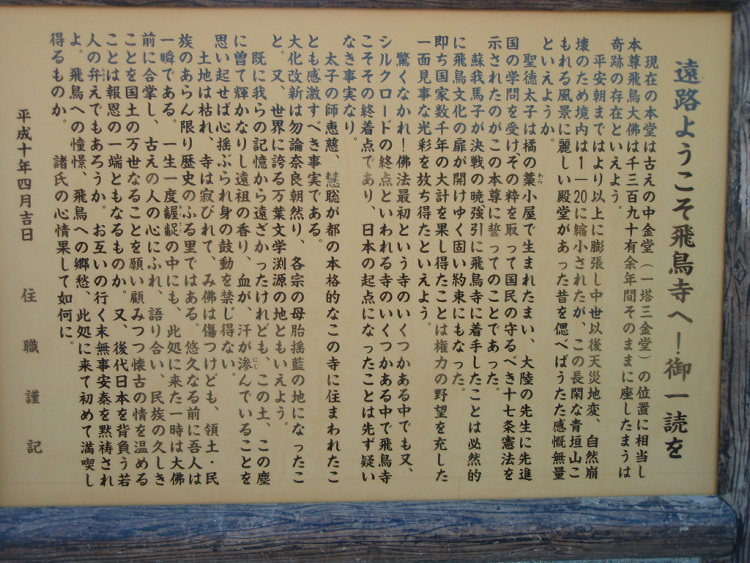 遠路ようこそ飛鳥寺へ!御一読を
現在の本堂は古えの中金堂(一塔三金堂)の位置に相当し
本尊飛鳥大佛は千三百九十有余年間そのままに座したまうは
奇跡の存在といえよう。
平安朝まではより以上に膨張し中世以後天災地変、自然崩
壊のため境内は1―20に縮小されたが、この長閑な青垣山こ
もれる風景に麗しい殿堂があった昔を偲べばうたた感慨無量
といえようか。
聖徳太子は橘の藁小屋で生まれたまい、大陸の先生に先進
わら
国の学問を受けその粋を取って国民の守るべき十七条憲法を
示されたのがこの本尊に誓ってのことであった。
蘇我馬子が決戦の暁強引に飛鳥寺に着手したことは必然的
に飛鳥文化の扉が開けゆく固い約束にもなった。
即ち国家数千年の大計を果し得たことは権力の野望を充した
一面見事な光彩を放ち得たといえよう。
驚くなかれ!佛法最初という寺のいくつかある中でも又、
シルクロードの終点といわれる寺のいくつかある中で飛鳥寺
こそその終着点であり、日本の起点になったことは先ず疑い
なき事実なり。
太子の師恵慈、慧聡が都の本格的なこの寺に住まわれたこ
とも感激すべき事実である。
大化改新は勿論奈良朝然り、各宗の母胎揺藍の地になったこ
と。又、世界に誇る万葉文学渕源の地ともいえよう。
既に我らの記憶から遠ざかったけれども、この土、この塵
に曽て輝かなりし遠祖の香り、血が、汗が滲んでいることを
にじ
思い起せば心揺ぶられ身の鼓動を禁じ得ない。
土地は枯れ、寺は寂びれて、み佛は傷つけども、領土・民
族のあらん限り歴史のふる里ではある。悠久なる前に吾人は
一瞬である。一生一度齷齪の中にも、此処に来た一時は大佛
前に合掌し、古えの人の心にふれ、語り合い、民族の久しき
ことを国土の万世なることを願い顧みつつ懐古の情を温める
ことは報恩の一端ともなるものか。又、後代日本を背負う若
人の弁えでもあろうか。お互いの行く末無事安泰を黙祷され
よ。飛鳥への憧憬、飛鳥への郷愁、此処に来て初めて満喫し
得るものか。 諸氏の心情果して如何に。
平成十年四月吉日
住職謹記